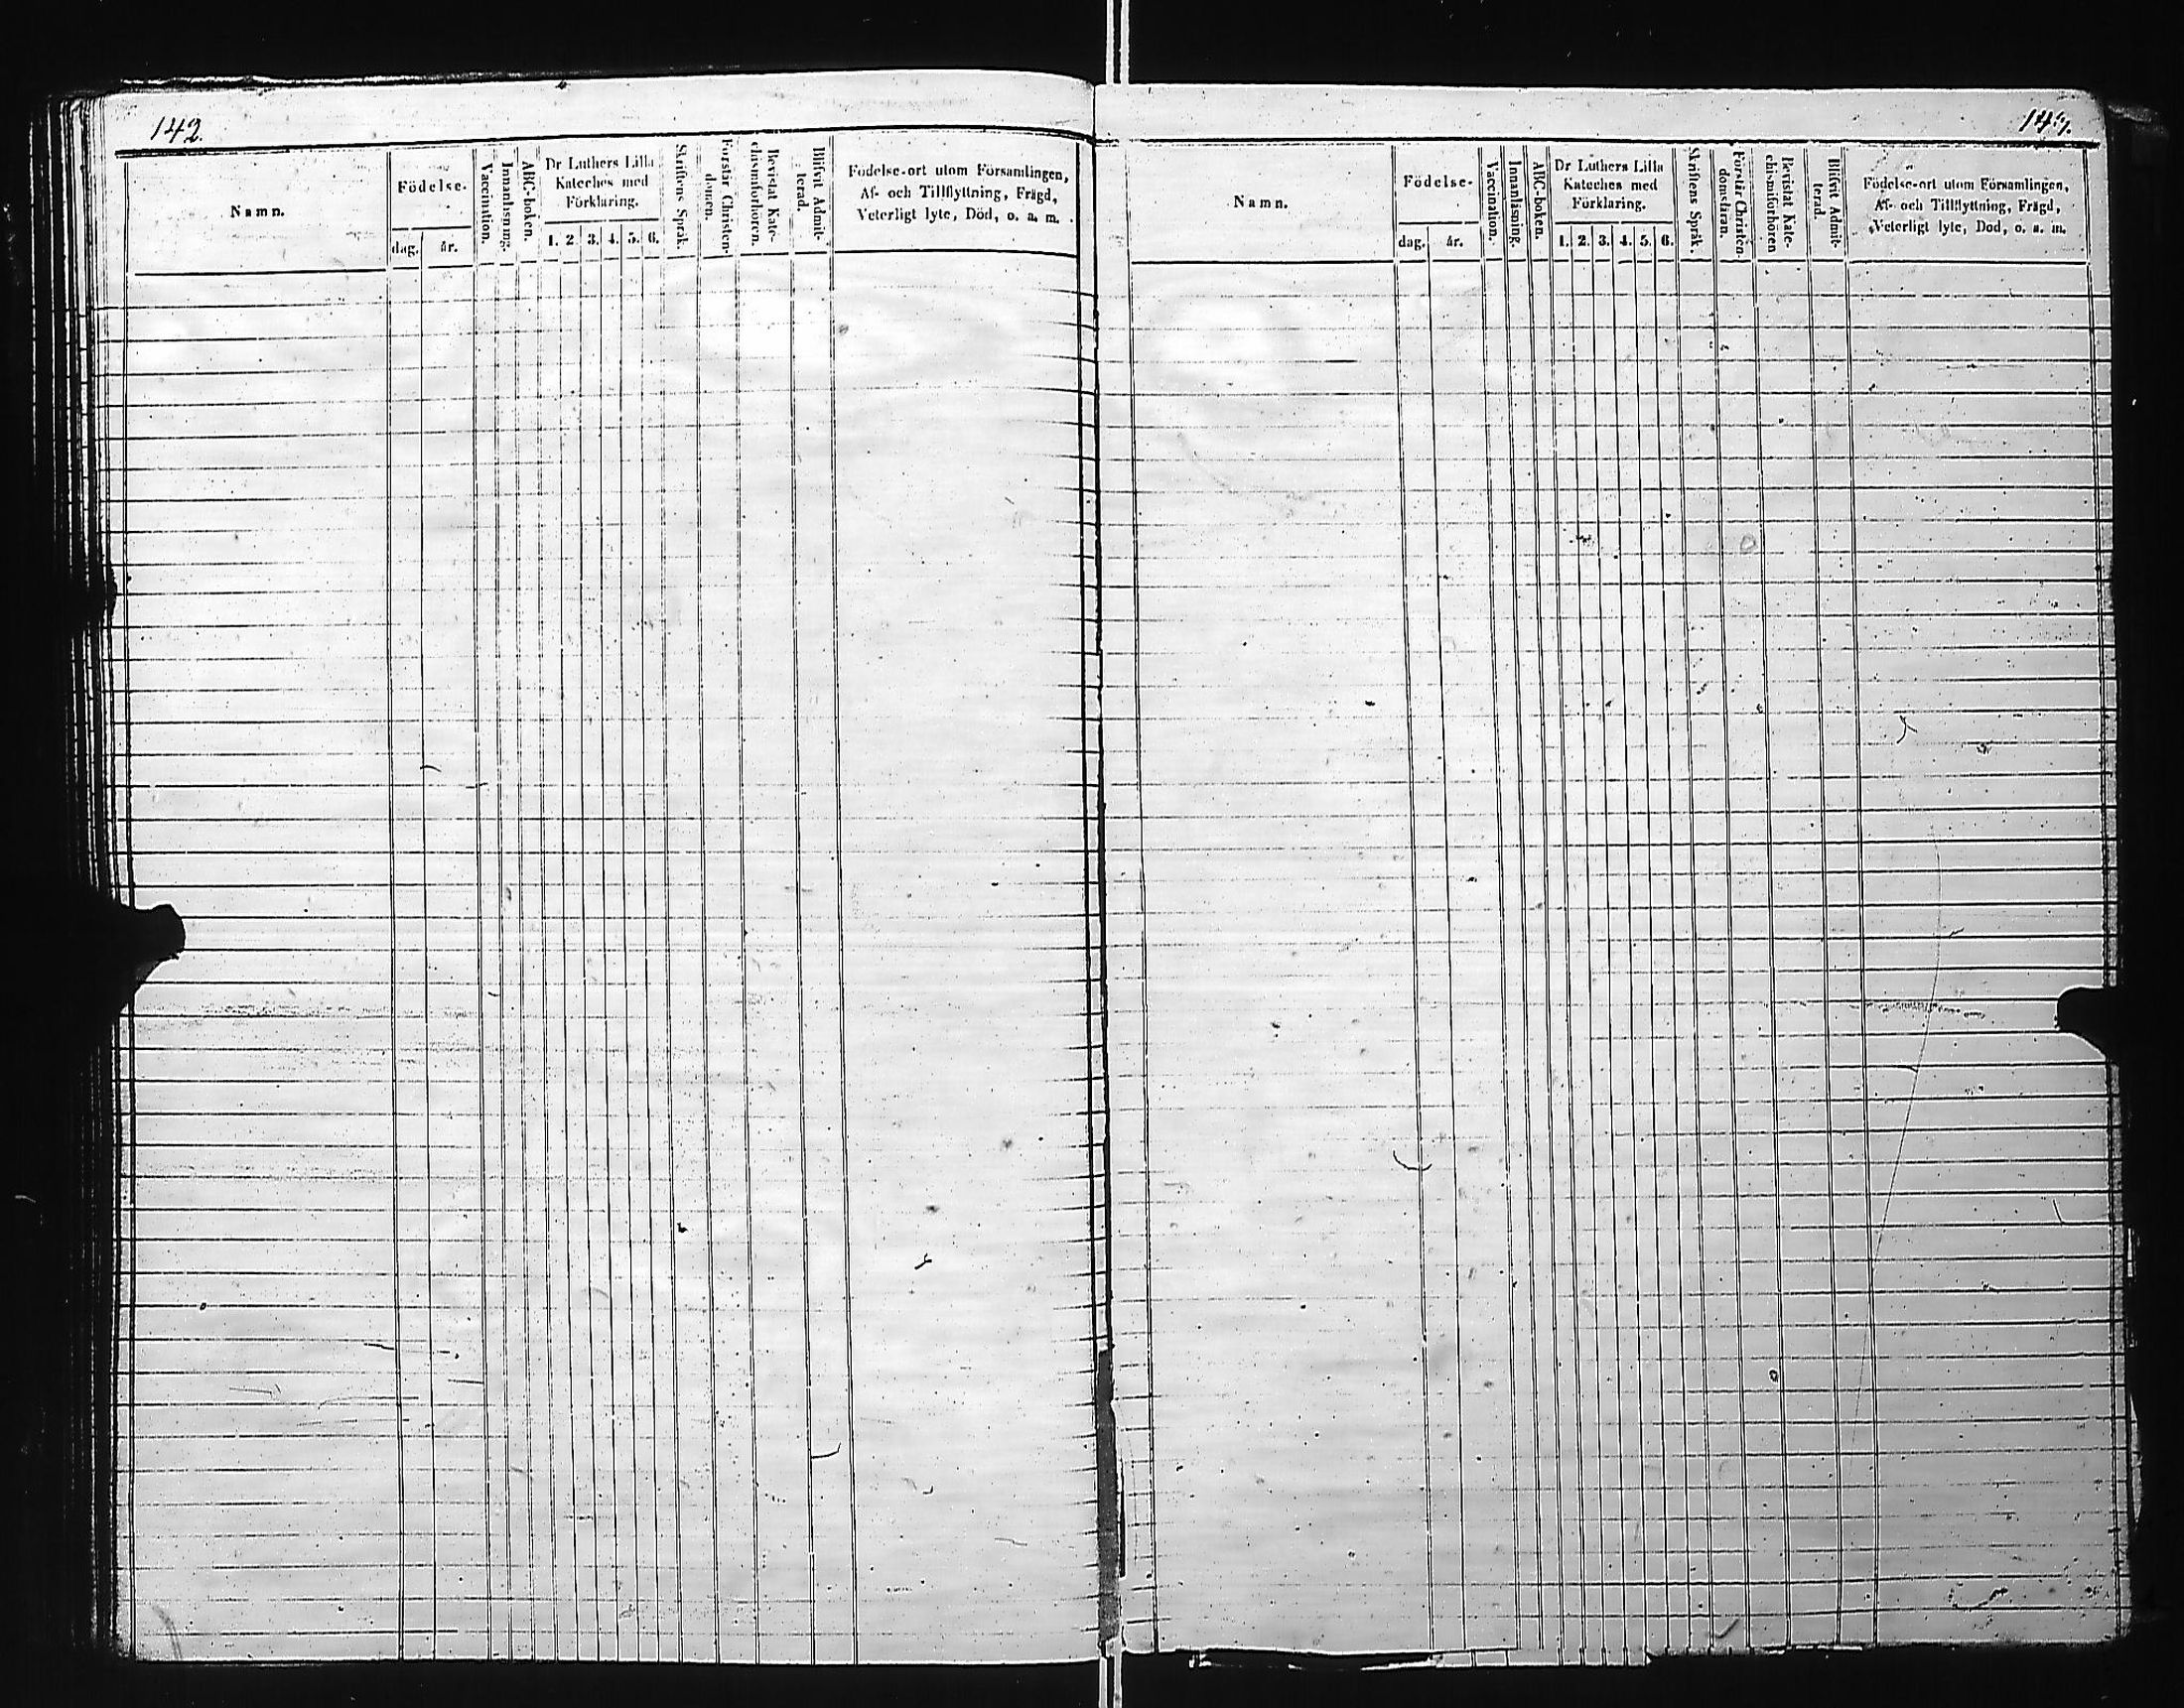 142.
Namn.
Födelse.
dag. år.
Vaccination.
Innanläsning.
ABC-boken.
Dr Luthers Lilla
Kateches med
Förklaring.
1. 2. 3. 4. 5. 6.
Skriftens Språk.
Förstår Christen-
domen.
Bevistat Kate-
chismiförhören.
Blifvit Admit-
terad.
Födelse-ort utom Församlingen,
Af- och Tillflyttning, Frägd,
Veterligt lyte, Död, o. a. m.
Namn.
Födelse-
dag. år.
Vaccination.
Innanläsning.
ABC-boken.
Dr Luthers Lilla
Kateches med
Förklaring.
1. 2. 3. 4. 5. 6.
Skriftens Språk.
Förstår Christen-
domsläran.
Bevistat Kate-
chismiförhören
Blifvit Admit-
terad.
Födelse-ort utom Församlingen,
Af- och Tillflyttning, Frägd,
Veterligt lyte, Död, o. a. m.